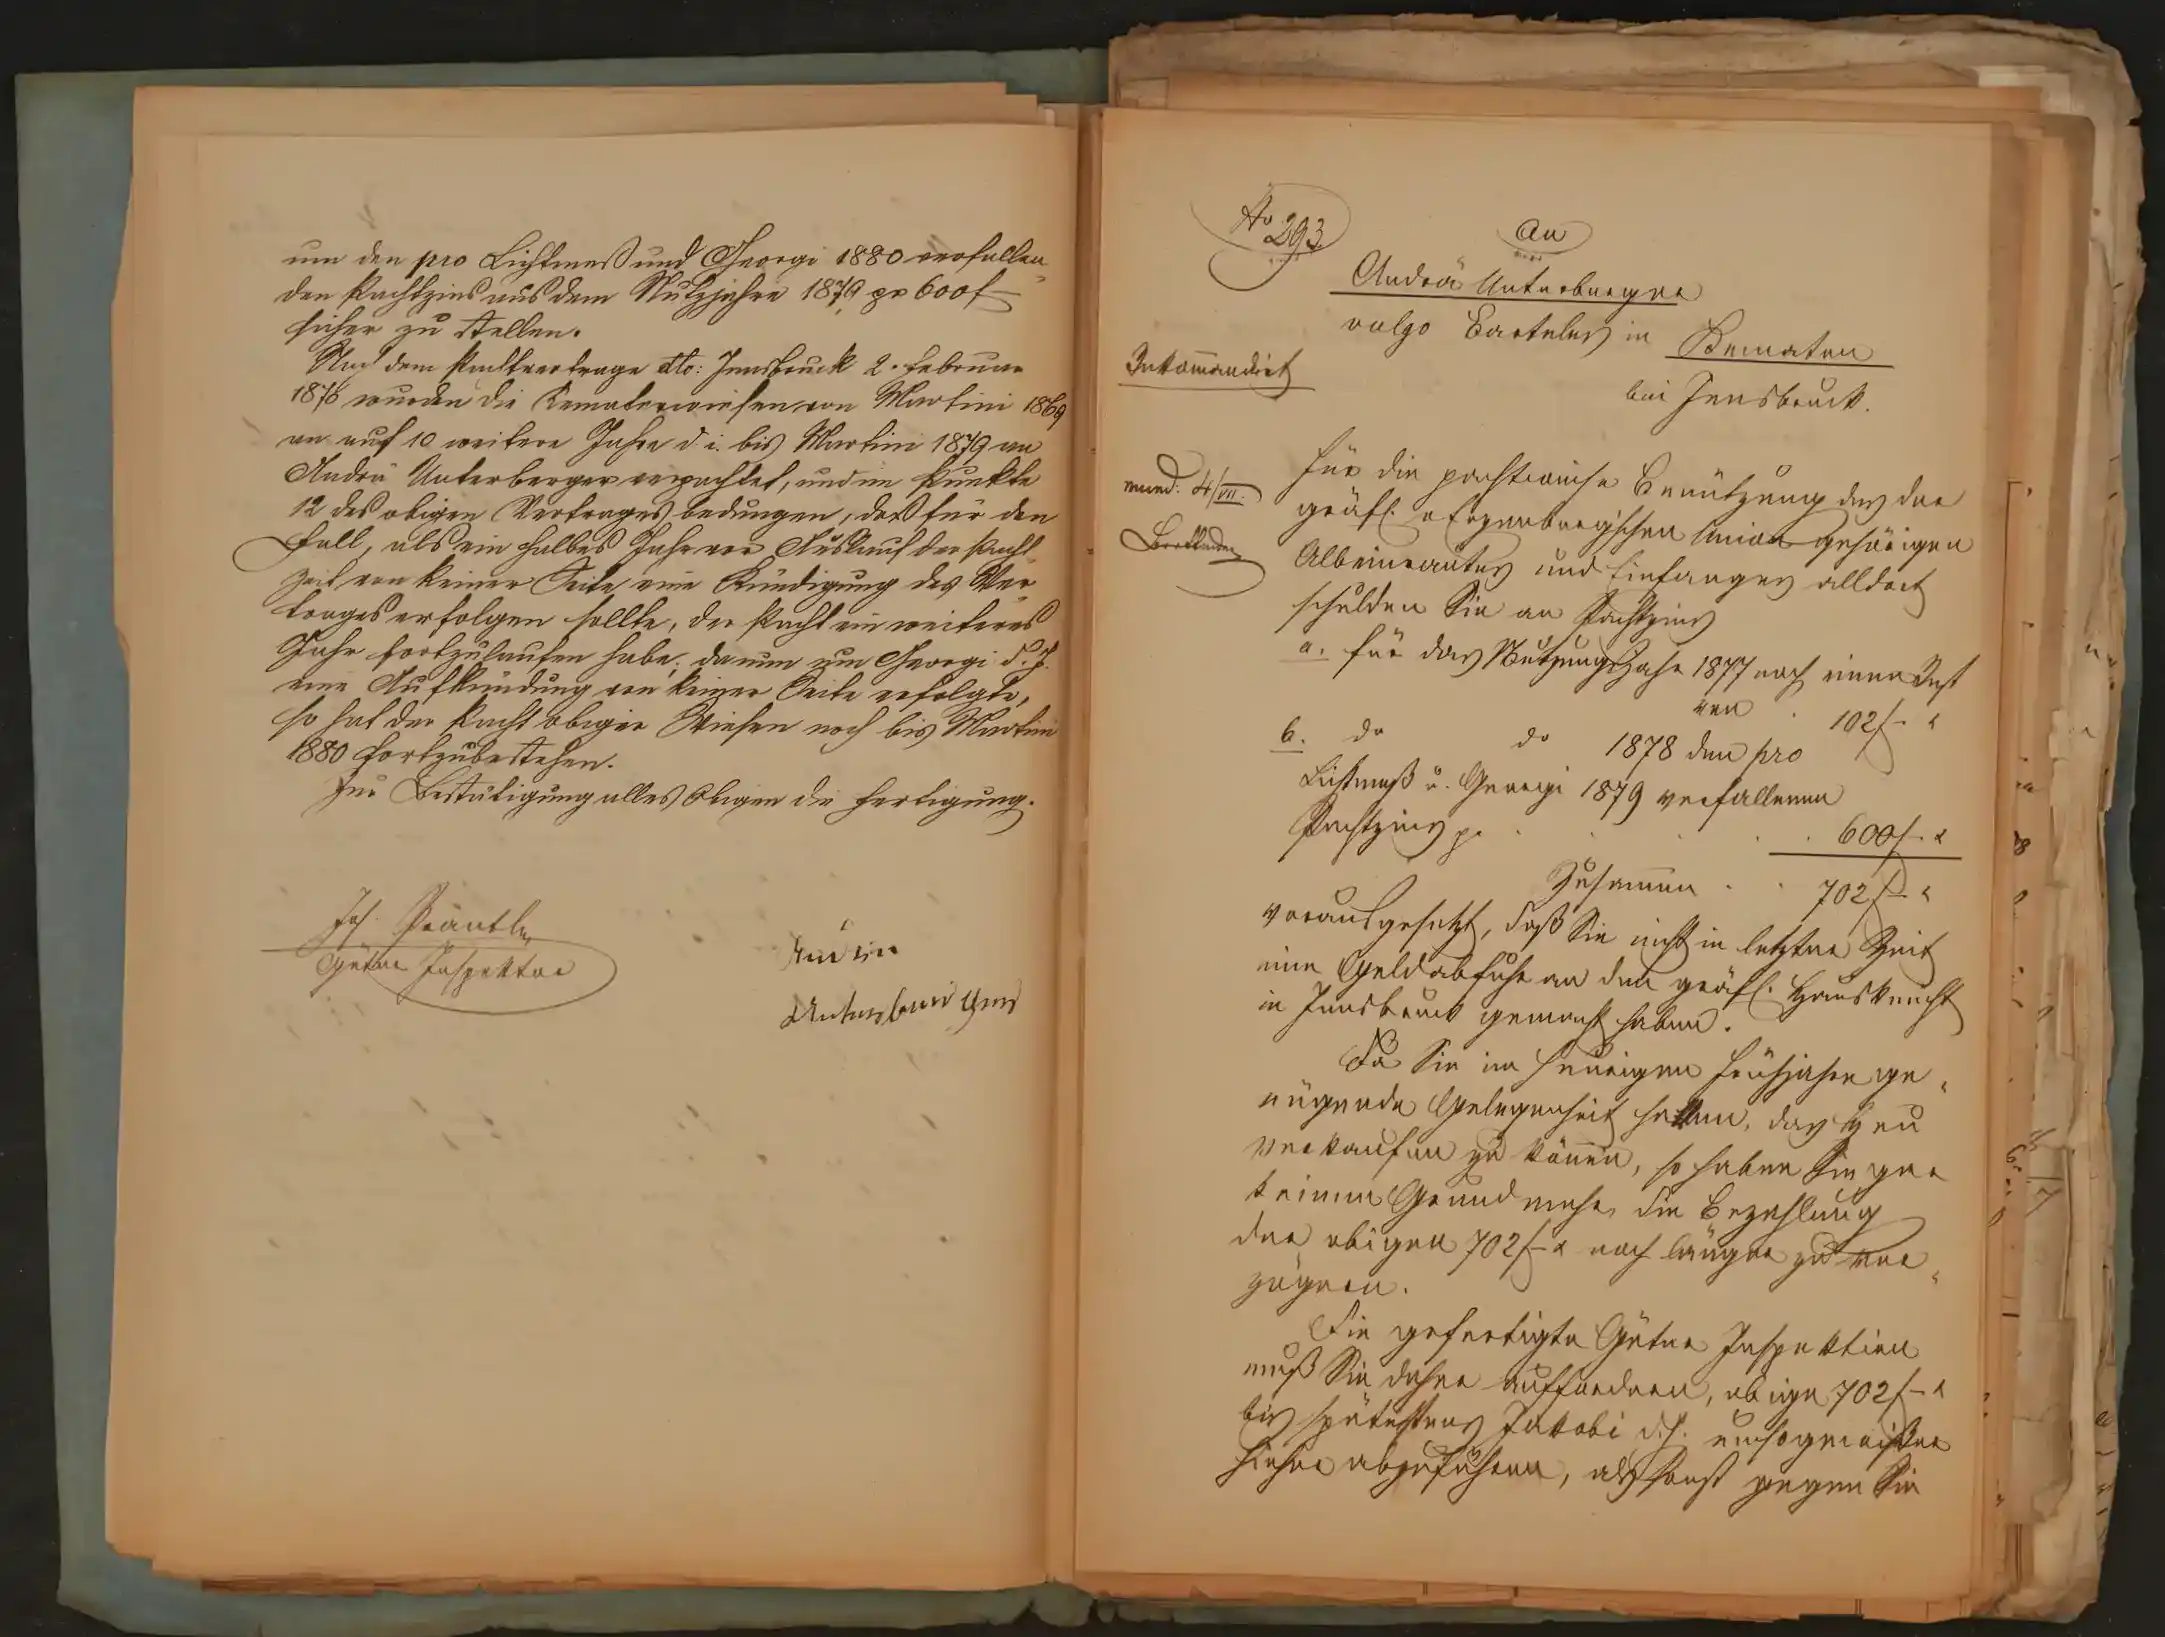 um den pro Lichtmeß und Georgi 1880 verfallen„
den Pachtzins aus dem Nutzjahre 1879 pr 600 f
sicher zu stellen.
Nach dem Pachtvertrage dto: Innsbruck 2. Februar
1870 wurden die Kematerwiesen von Martini 1869
an auf 10 weitere Jahre d. i. bis Martini 1879 an
Andrä Unterberger verpachtet, und im Punkte
12 des obigen Vertrages bedungen, daß für den
Fall, als ein halbes Jahr vor Auslauf der Pacht„
zeit von keiner Seite eine Kündigung des Ver„
trages erfolgen sollte, der Pacht ein weiteres
Jahr fortzulaufen habe; da nun zu Georgi d. J.
eine Aufkündung von keiner Seite erfolgte,
so hat der Pacht obiger Wiesen noch bis Martini
1880 fortzubestehen.
Zur Bestätigung alles Obigen die Fertigung.
Jos. Prantl
Güter Inspektor
Andrä
Unterberger
No 293.
An
Andrä Unterberger
vulgo Barteler in Kematen
bei Innsbruck.
Rekomandirt
mund. 4/VII.
für die pachtweise Benützung des der
gräfl. v Enzenberg'schen Union gehörigen
Albeinrautes und Einfanges alldort
schulden Sie an Pachtzins
a. für das Nutzungsjahr 1877 noch einen Rest
von . 102 f – "
b. do do 1878 den pro
Lichtmeß u. Georgi 1879 verfallenen
Pachtzins pr . . . . 600 f – "
Zusammen . . 702 f – "
vorausgesetzt, daß Sie nicht in letzter Zeit
eine Geldabfuhr an den gräfl. Hausknecht
in Innsbruck gemacht haben.
Da Sie im heurigen Frühjahre ge„
nügende Gelegenheit hatten, das Heu
verkaufen zu können, so haben Sie gar
keinen Grund mehr, die Bezahlung
der obigen 702 f – " noch länger zu ver„
zögern.
Die gefertigte Güter Inspektion
muß Sie daher auffordern, obige 702 f – "
bis spätestens Jakobi d. J. umsogewisser
hieher abzuführen, als sonst gegen Sie